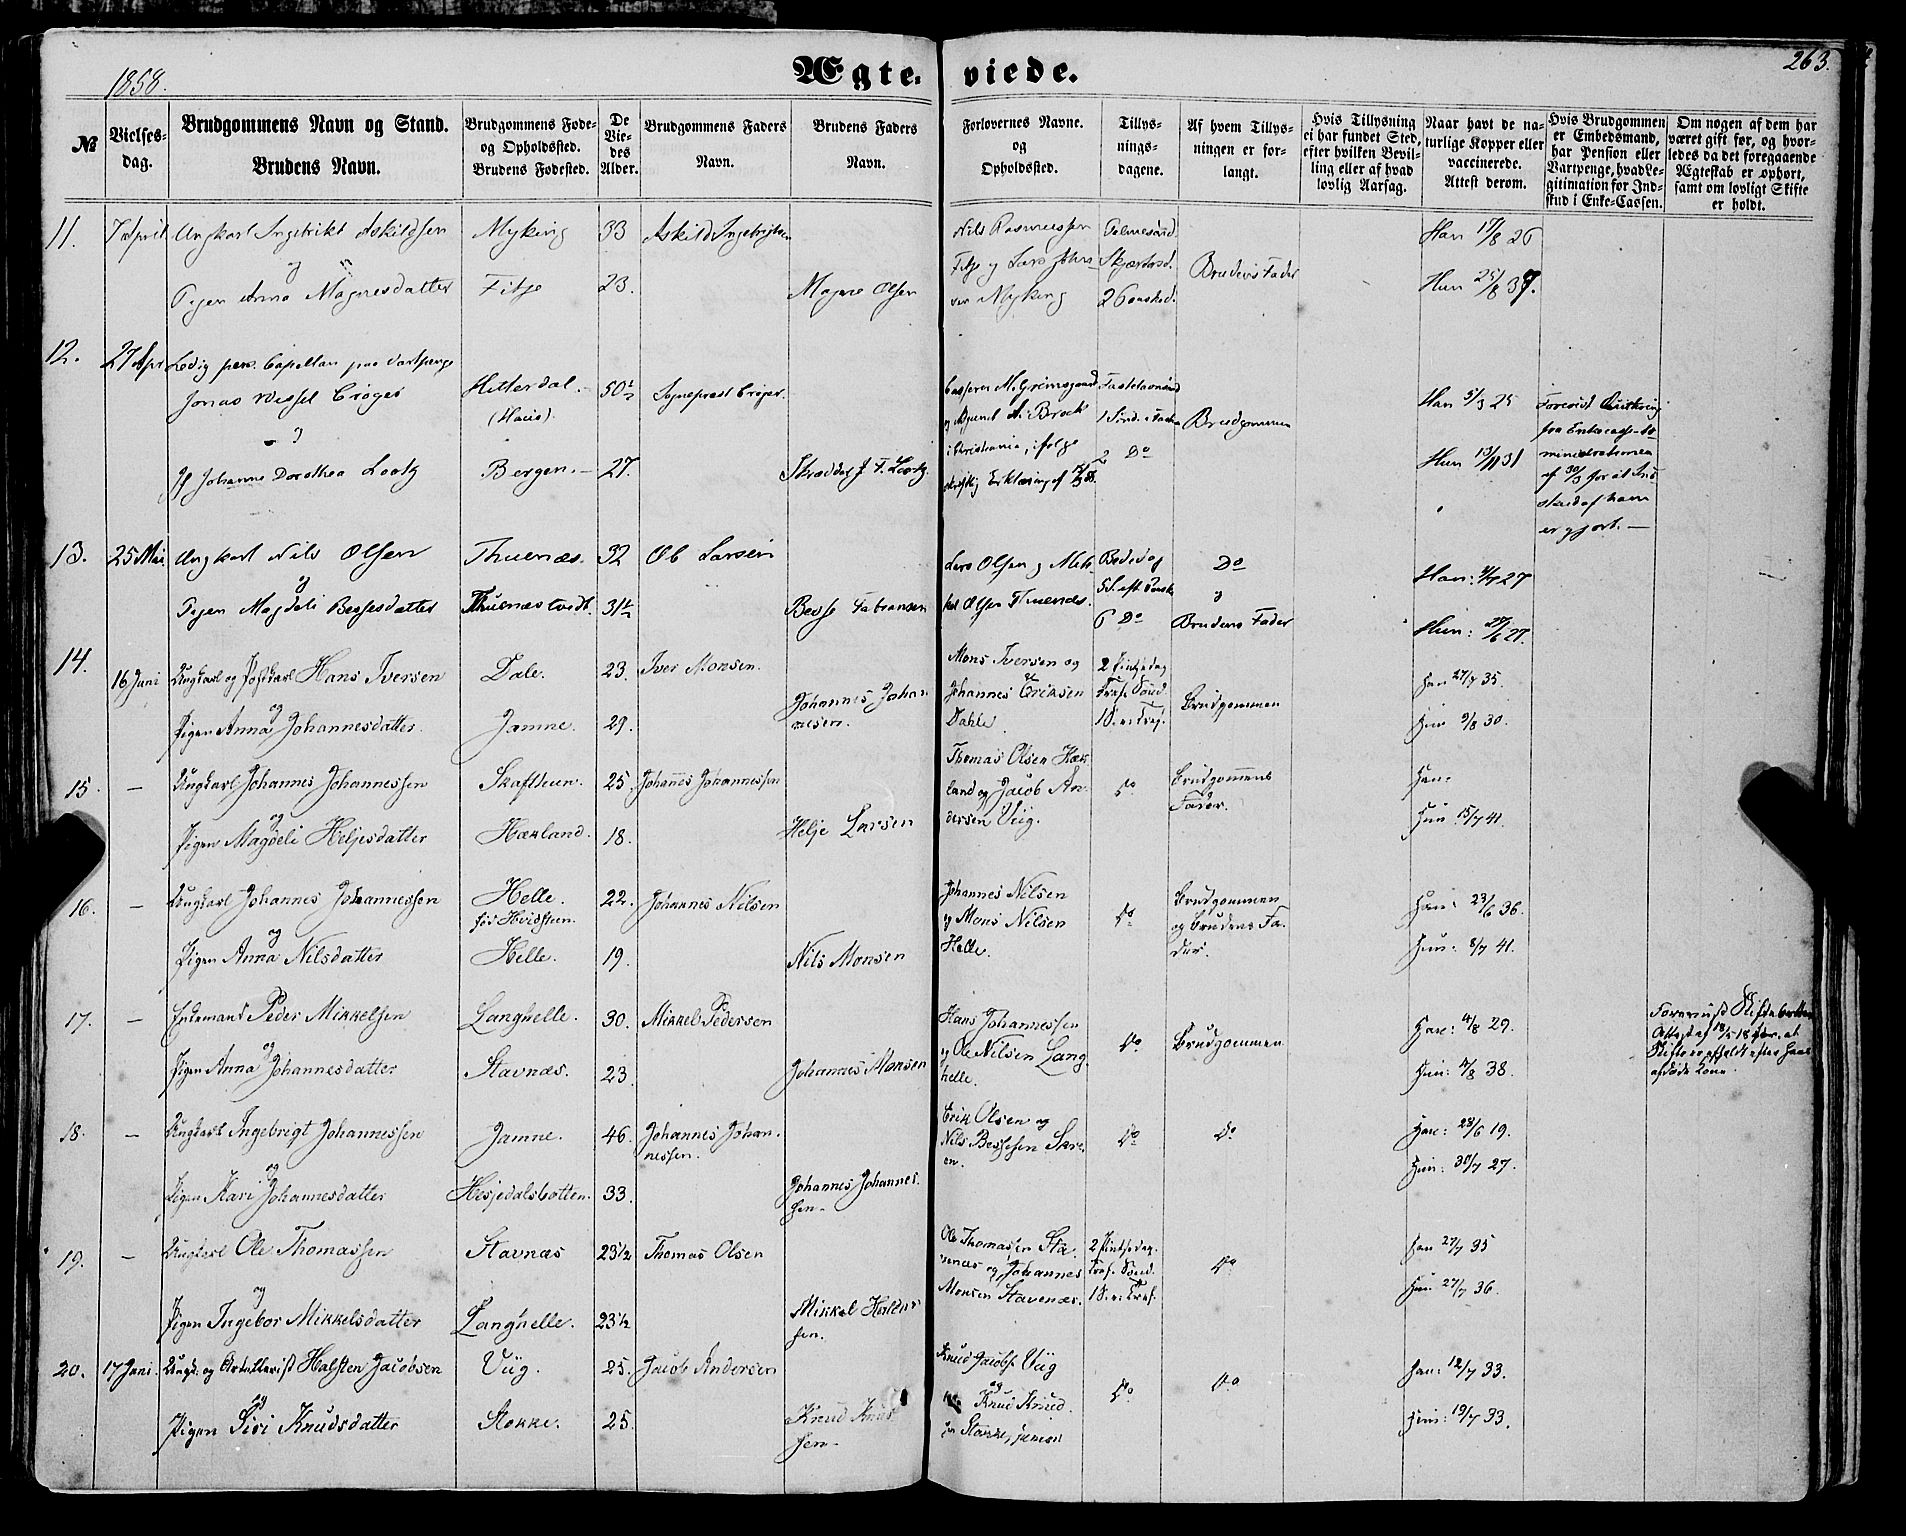 1858.
Ægte.
viede.
263.
№
Vielses-
dag.
Brudgommens Navn og Stand.
Brudens Navn.
Brudgommens Føde-
og Opholdssted.
Brudens Fødested.
De
Vie-
des
Alder.
Brudgommens Faders
Navn.
Brudens Faders
Navn.
Forlovernes Navne.
og
Opholdssted.
Tillys-
nings-
dagene.
Af hvem Tillys-
ningen er for-
langt.
Hvis Tillysning
ei har fundet Sted,
efter hvilken Bevil-
ling eller af hvad
lovlig Aarsag.
Naar havt de na-
turlige Kopper eller
vaccinerede.
Attest derom.
Hvis Brudgommen
er Embedsmand,
har Pension eller
Vartpenge, hvad Le-
gitimation for Ind-
skud i Enke-Cassen.
Om nogen af dem har
været gift før, og hvor-
ledes da det foregaaende
Ægteskab er ophørt,
samt om lovligt Skifte
er holdt.
11.
7 April
Ungkarl Ingebrikt Askildsen
og
Pigen Anna Magnesdatter
Myking
Fitje
33
23.
Askild Ingebrigtsen
Magne Olsen
Nils Rasmussen
Fitje og Lars
Myking
Palmesønd.
Skjærtorsd.
2 Paasked.
Brudens Fader
Han 17/8 26
Hun 25/8 37.
12.
27 Apr
Ledig pers. Capellan paa Vartpenge
Jonas Wessel Crøger
og
Jf Johanne Dorothea Lootz
Hitterdal.
Bergen.
50½
27.
Sogneprest Crøger.
Brudgommen
i Christiania, ifølge
skriftlig Erklæring af
2 Do
Han 5/3 25
Hun 13/11 31
er gjort. —
13.
25 Mai
Ungkarl Nils Olsen
og
Pigen Magdeli Bessesdatter
Thuenæs.
Thuenæstvedt.
32
31½
Ole Larsen
Besse Fabiansen
Lars Olsen og Mik-
kel Olsen Thuenæs.
Bededag
6 Do
Do
og
Brudens Fader
Han: 4/7 27
Hun: 27.
14.
16 Juni
Ungkarl og Hans Iversen
og
Pigen Anna Johannesdatter.
Dale.
Jamne.
23.
29.
Iver Monsen.
Johannes Johan
nesen.
Mons Iversen og
Johannes Eriksen
Dahle.
2 Pintsedag
Tref. Sønd.
1 S. e. Tref.
Brudgommen
Han 27/7 35.
Hun 9/8 30.
15.
—
Ungkarl Johannes Johannessen
og
Pigen Magdeli Heljesdatter
Skafthun.
Hækland.
25.
18.
Johannes Johannessen
Helje Larsen
Thomas Olsen Hæk
land og Jacob An-
dersen Viig.
Do
Brudgommens
Fader.
Han.
Hun 15/7 41.
16.
—
Ungkarl Johannes Johannessen
og
Pigen Anna Nilsdatter
Helle.
Helle.
22.
19.
Johannes Nilsen
Nils Monsen
Johannes Nilsen
og Mons Nilsen
Helle.
Do
Brudgommen
og Brudens Fa-
der.
Han: 23/6 36.
Hun: 8/7 41.
17.
—
Enkemand Peder Mikkelsen
og
Pigen Anna Johannesdatter
Langhelle.
Stavnæs.
30.
23.
Mikkel Pedersen
Johannes Monsen
Hans Johannessen
og Ole Nilsen Lang
helle.
Do
Brudgommen
Han: 4/8 29.
Hun: 4/8 38.
Skifte er afholdt efter hans
afdøde Kone.
18.
—
Ungkarl Ingebrigt Johannessen
og
Pigen Kari Johannesdatter
Jamne.
Hesjedalsbotten.
46.
33.
Johannes Johan-
nessen.
Johannes Johannes-
sen.
Erik Olsen og
Nils Bessesen Skre
en.
Do
Do
Han: 23/6 19.
Hun: 30/7 27.
19.
—
Ungkarl Ole Thomassen
og
Pigen Ingebor Mikkelsdatter
Stavnæs
Langhelle.
23½
23½
Thomas Olsen
Mikkel Haldor
sen.
Ole Thomassen Sta
venæs og Johannes
Monsen Stavenæs.
2 Pintsedag.
Tref. Sønd.
1 S. e. Tref.
Do
Han 27/7 35
Hun 27/7 36.
20.
17 Juni.
Ungk. og Artillerist Halsten Jacobsen
og
Pigen Siri Knudsdatter
Viig.
Stokke.
25.
25.
Jacob Andersen
Knud Knud
sen.
Knud Jacobs. Viig
og Knud Knud
sen Stokke, junior
Do
Do
Han: 12/7 33.
Hun: 19/7 33.